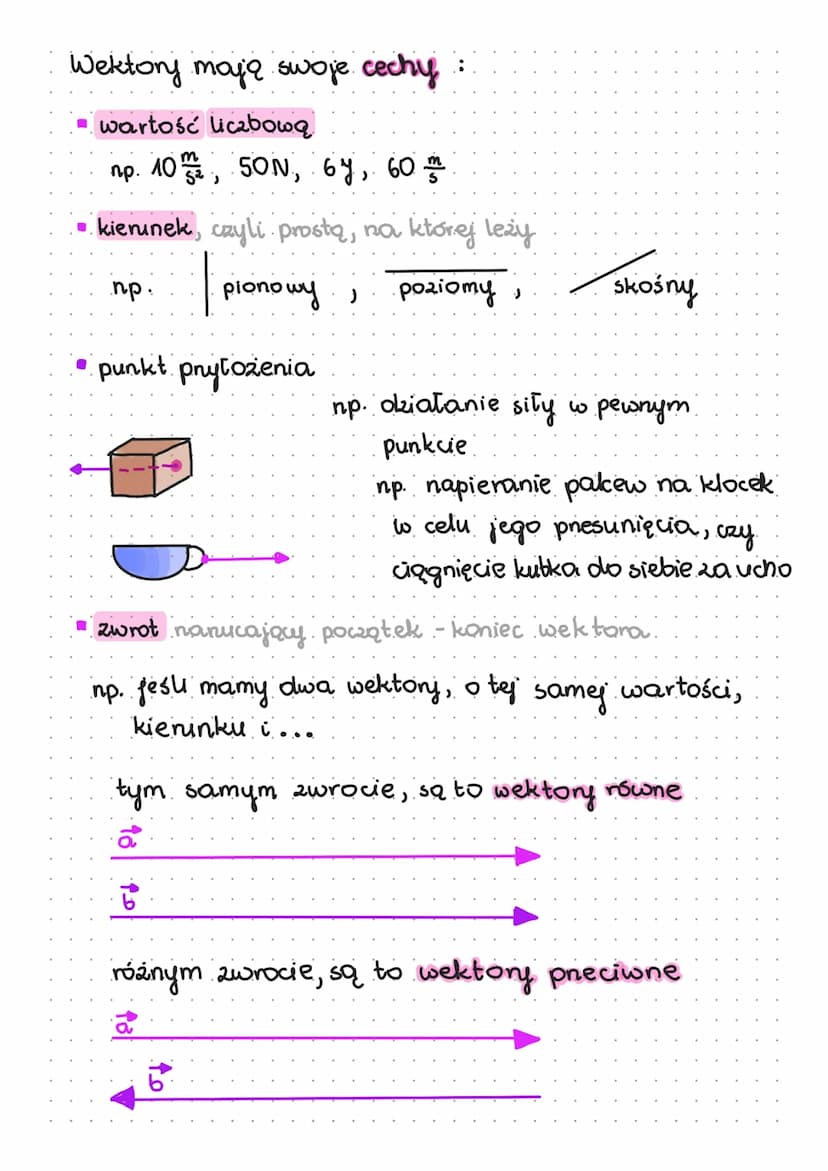 Wektory mają swoje cechy :
▪ wartość liczbową
np. 10 m/s², 50N, 6y, 60 m/s
▪ kierunek, czyli prostą, na której leży
np. | pionowy , poziomy , skośny
▪ punkt przyłożenia
np. działanie siły w pewnym
punkcie
np. napieranie palcem na klocek
w celu jego przesunięcia, czy
ciągnięcie kubka do siebie za ucho
▪ zwrot narzucający początek - koniec wektora.
np. jeśli mamy dwa wektory, o tej samej wartości,
kierunku i ...
tym samym zwrocie, są to wektory równe
a⃗
b⃗
różnym zwrocie, są to wektory przeciwne
a⃗
b⃗